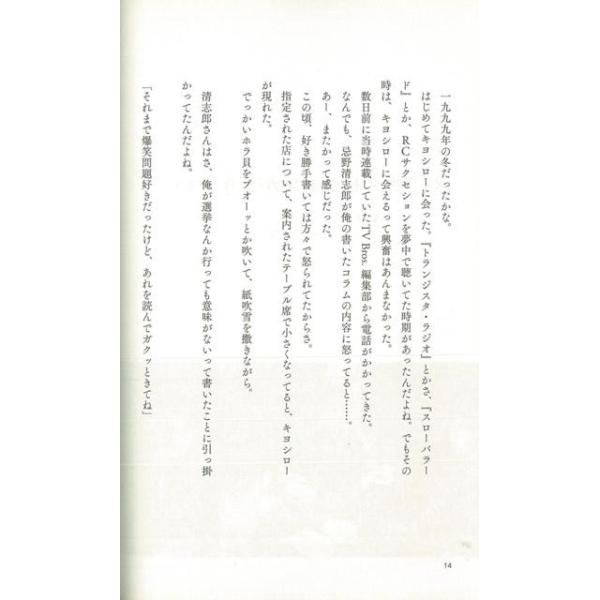 一九九九年の冬だったかな。
はじめてキヨシローに会った。『トランジスタ・ラジオ』とかさ、『スローバラー
ド』とか、RCサクセションを夢中で聴いてた時期があったんだよね。でもその
時は、キヨシローに会えるって興奮はあんまなかった。
数日前に当時連載していたTV Bros. 編集部から電話がかかってきた。
なんでも、忌野清志郎が俺の書いたコラムの内容に怒ってると……。
あー、またかって感じだった。
この頃、好き勝手書いては方々で怒られてたからさ。
指定された店について、案内されたテーブル席で小さくなってると、キヨシロー
が現れた。
でっかいホラ貝をブオーッとか吹いて、紙吹雪を撒きながら。
清志郎さんはさ、俺が選挙なんか行っても意味がないって書いたことに引っ掛
かってたんだよね。
「それまで爆笑問題好きだったけど、あれを読んでガクッときてね」
14